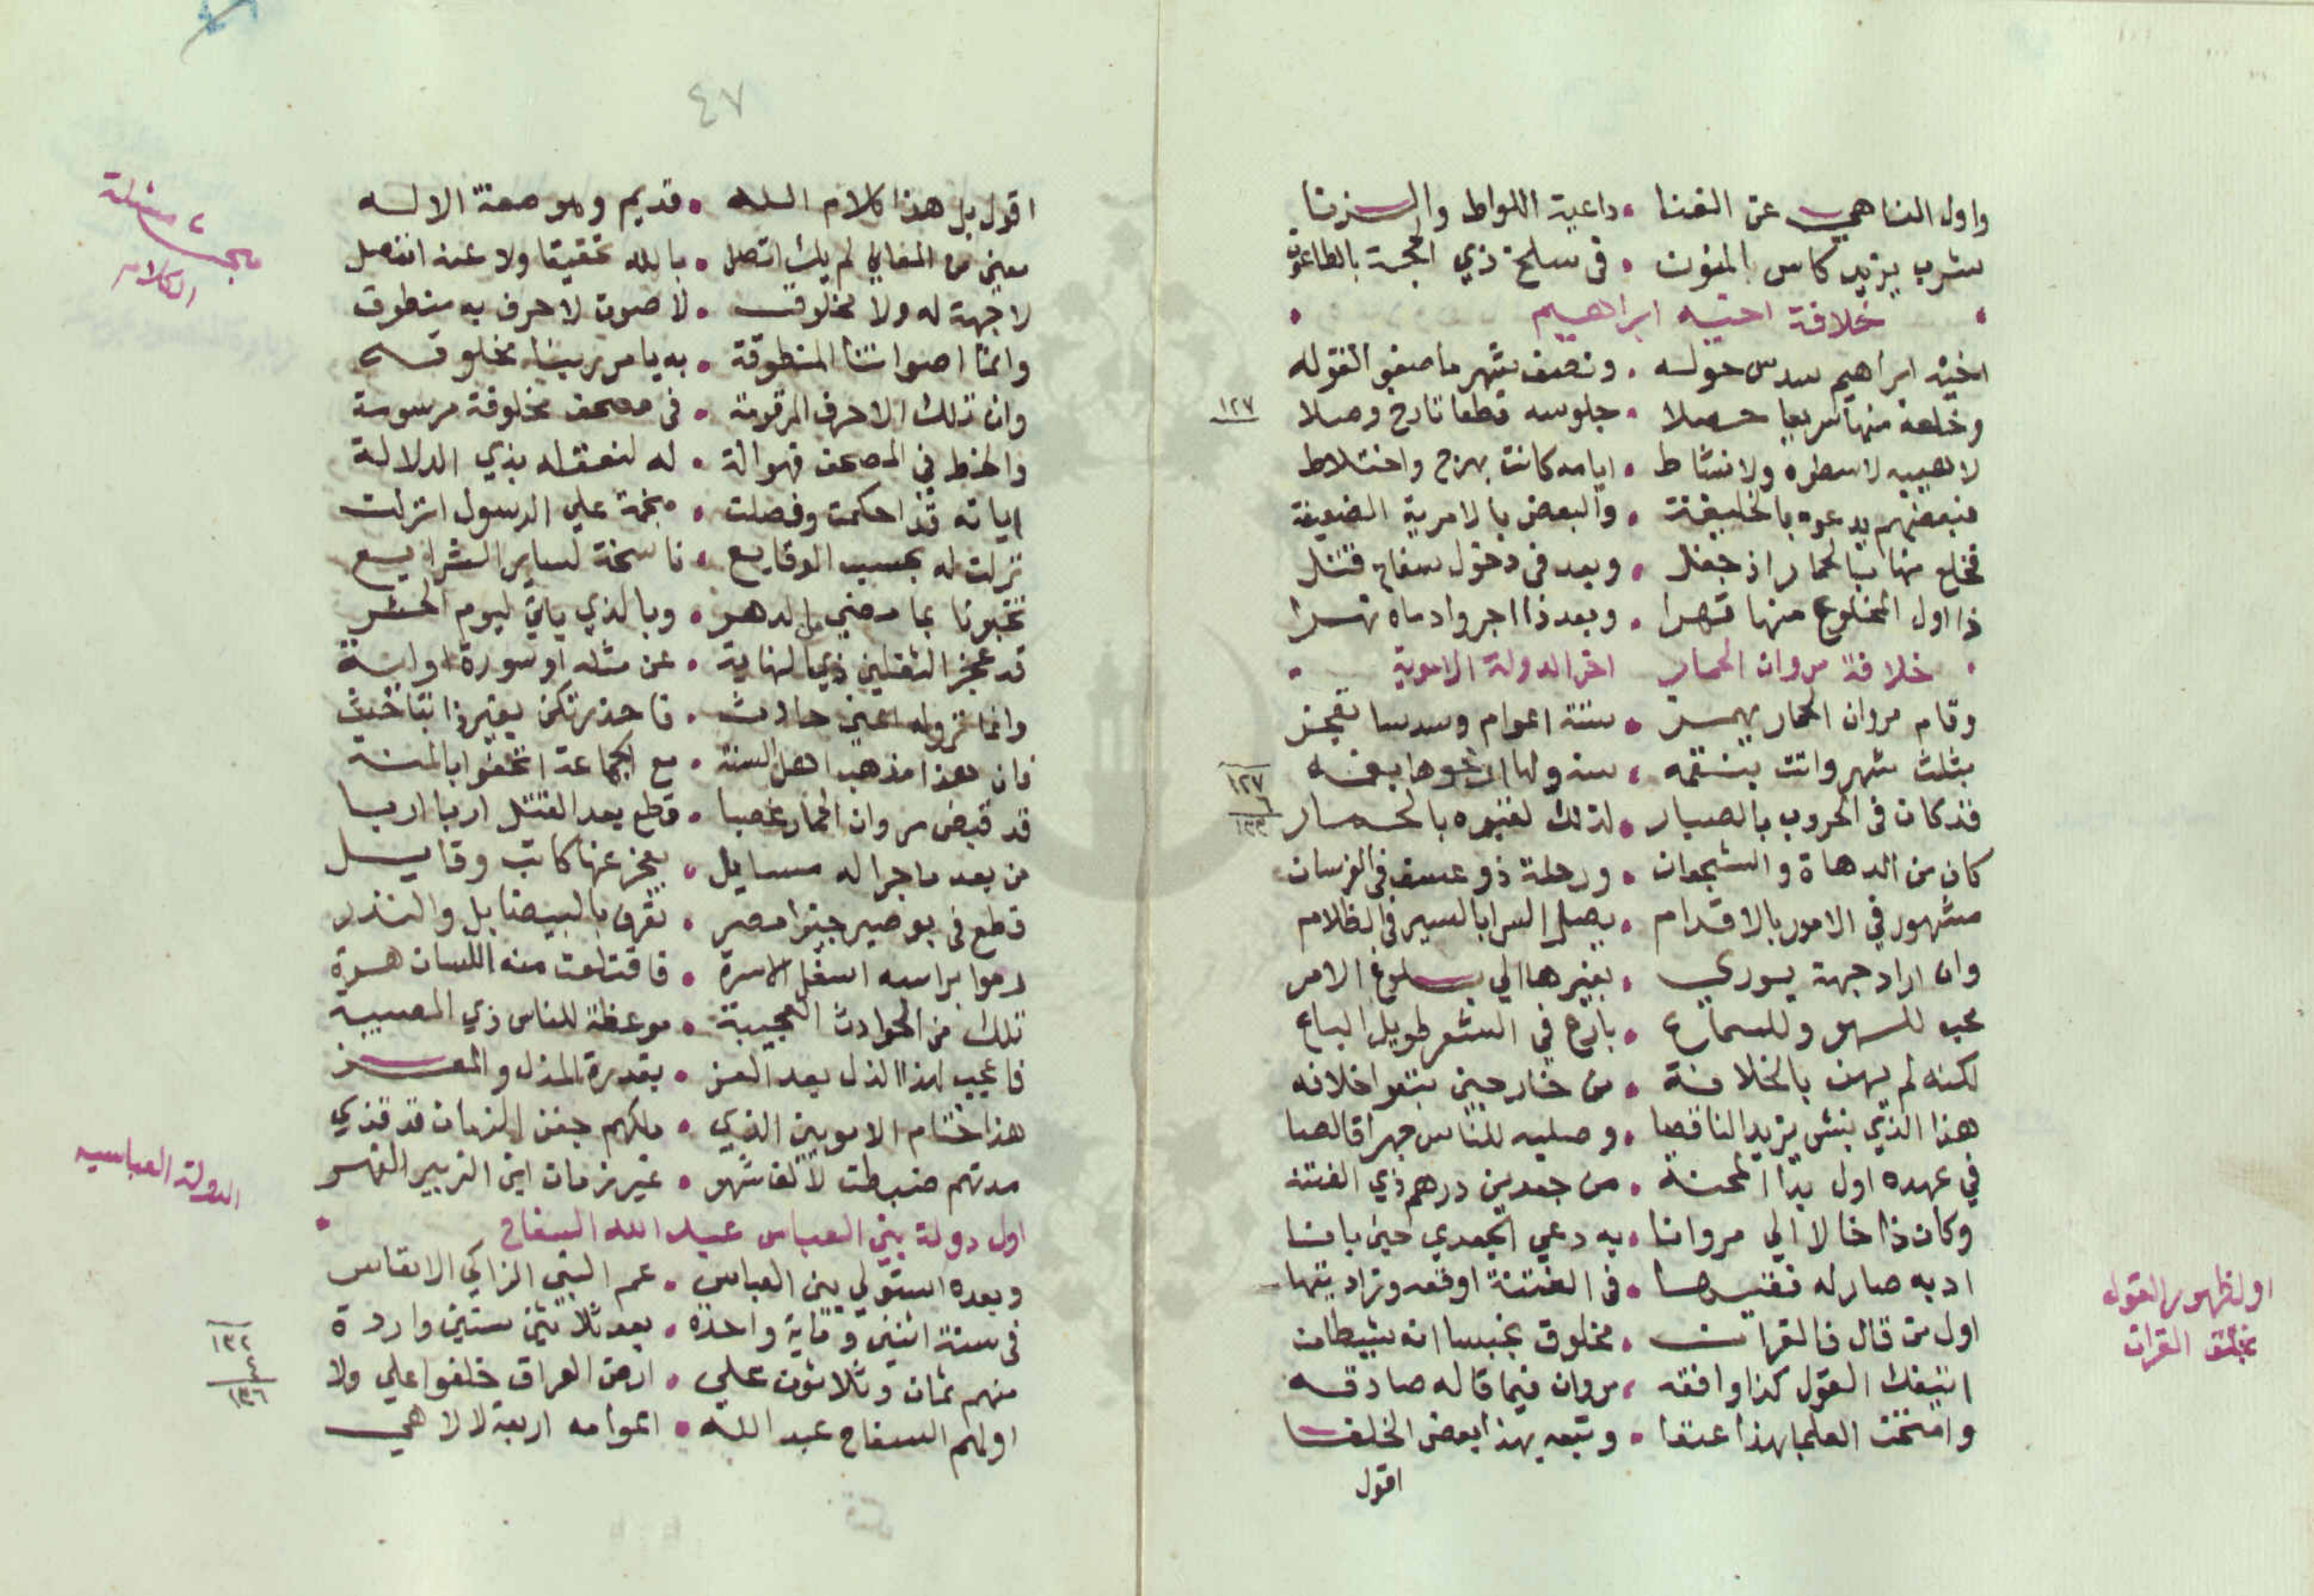 واول الناهي عن الغنا • داعية اللواط والزنا
شرب يزيد كاس المنون • في سلخ ذي الحجة بالطاعون
خلافة اخيه ابراهيم
اخيه ابراهيم سدس حوله • ونصف شهر ما صفو القوله
وخلعه منها سريعا حصلا • جلوسه قطعا تارخ وصلا
١٢٧
لا هيبه لا سطره ولا نشاط • ايامه كانت بهرج واختلاط
فبعضهم يدعوه بالخليفة • والبعض بالامرية الضعيفة
فخلع منها بالحمار اذ جفل • وبعد في دخول سفاح قتل
ذا اول المخلوع منها قهرا • وبعد ذا اجروا دماه نهرا
خلافة مروان الحمار اخر الدولة الاموية
وقام مروان الحمار يهمز • ستة اعوام وسدسا يقجز
بثلث شهر واتت بنقمه • سنو
١٢٧
٦
١٣٢
قد كان في الحروب بالصبار • لذلك لقبوه بالحمار
كان من الدهاة والشجعان • ورحلة ذو عسف في الفرسان
مشهور في الامور بالاقدام • يصل السرا بالسير في الظلام
وان اراد جهة يوري • بغيرها الي بلوغ الامر
محب للهو وللسماع • بارع في الشعر طويل الباع
لكنه لم يهن بالخلافة • من خارجين بتغوا خلافه
هذا الذي نبش يزيد الناقصا • وصلبه للناس جهرا قالصا
في عهده اول بدا المحنة • من جعد بن درهم ذي الفتنة
وكان ذا خالا الي مروانا • به دعي الجعدي حين بانا
ادبه صار له فقيرها • في الفتنة اوقعه وزاد يتها
اول ظهور القول
بخلق القران
اول من قال فالقران • مخلوق بخبسا انه شيطان
انتفك القول كذا وافقه • مروان فيما قاله صادقه
وامتحن العلما بهذا عنفا • وتبعه بهذا بعض الخلفا
اقول
٤٧
اقول بل هذا كلام الله • قديم وهو صفة الاله
مسئلة
الكلام
معني من المعاني لم يك اتصل • بالله تحقيقا ولا عنه انفصل
لا جهة له ولا مخلوق • لا صوت لا حرف به منطوق
وانما اصواتنا المنطوقة • به يامر ربنا مخلوقه
وان تلك الاحرف المرقومة • في مصحف مخلوقة مرسومة
والخط في المصحف فهو الة • له لنعقله بذي الدلالة
اياته قد احكمت وفصلت • نجمة علي الرسول انزلت
نزلت له بحسب الوقايع • ناسخة لساير الشرايع
تخبرنا بما مضي من الدهر • وبالذي ياتي ليوم الحشر
قد عجز الثقلين ذي النهاية • عن مثله او سورة او اية
وانما نزوله اعني حادث • فاحذر تكن بغير ذا بتاحث
فان هذا مذهب اهل السنة • مع الجماعة اتحفوا بالمنة
قد قبض مروان الحمار غصبا • قطع بعد القتل اربا اربا
من بعد ما جرا له مسايل • يعجز عنها كاتب وقايل
قطع في بوصير جيزا مصر • تفرق بالبيضا بل والبندر
رموا براسه اسفل الاسرة • فاقتلعت منه اللسان هرة
تلك من الحوادث العجيبة • موعظة للناس ذي المصيبة
فاعجب لهذا الذل بعد العز • بقدرة المذل والمعز
هذا ختام الامويين الذي • ملكهم جفن الزمان قد قذي
مدتهم ضبطت لالف شهر • غير زمان ابن الزبير القهر
الدولة العباسيه
اول دولة بني العباس عبد الله السفاح
وبعده استولي بني العباس • عم النبي الزاكي الانفاس
في سنة اثنين وماية واحدة • بعد ثلاثين سنين واردة
١٣٢
٤
١٣٦
منهم ثمان وثلاثون علي • ارض العراق خلفوا علي ولا
اولهم السفاح عبد الله • اعوامه اربعة لا لاهي